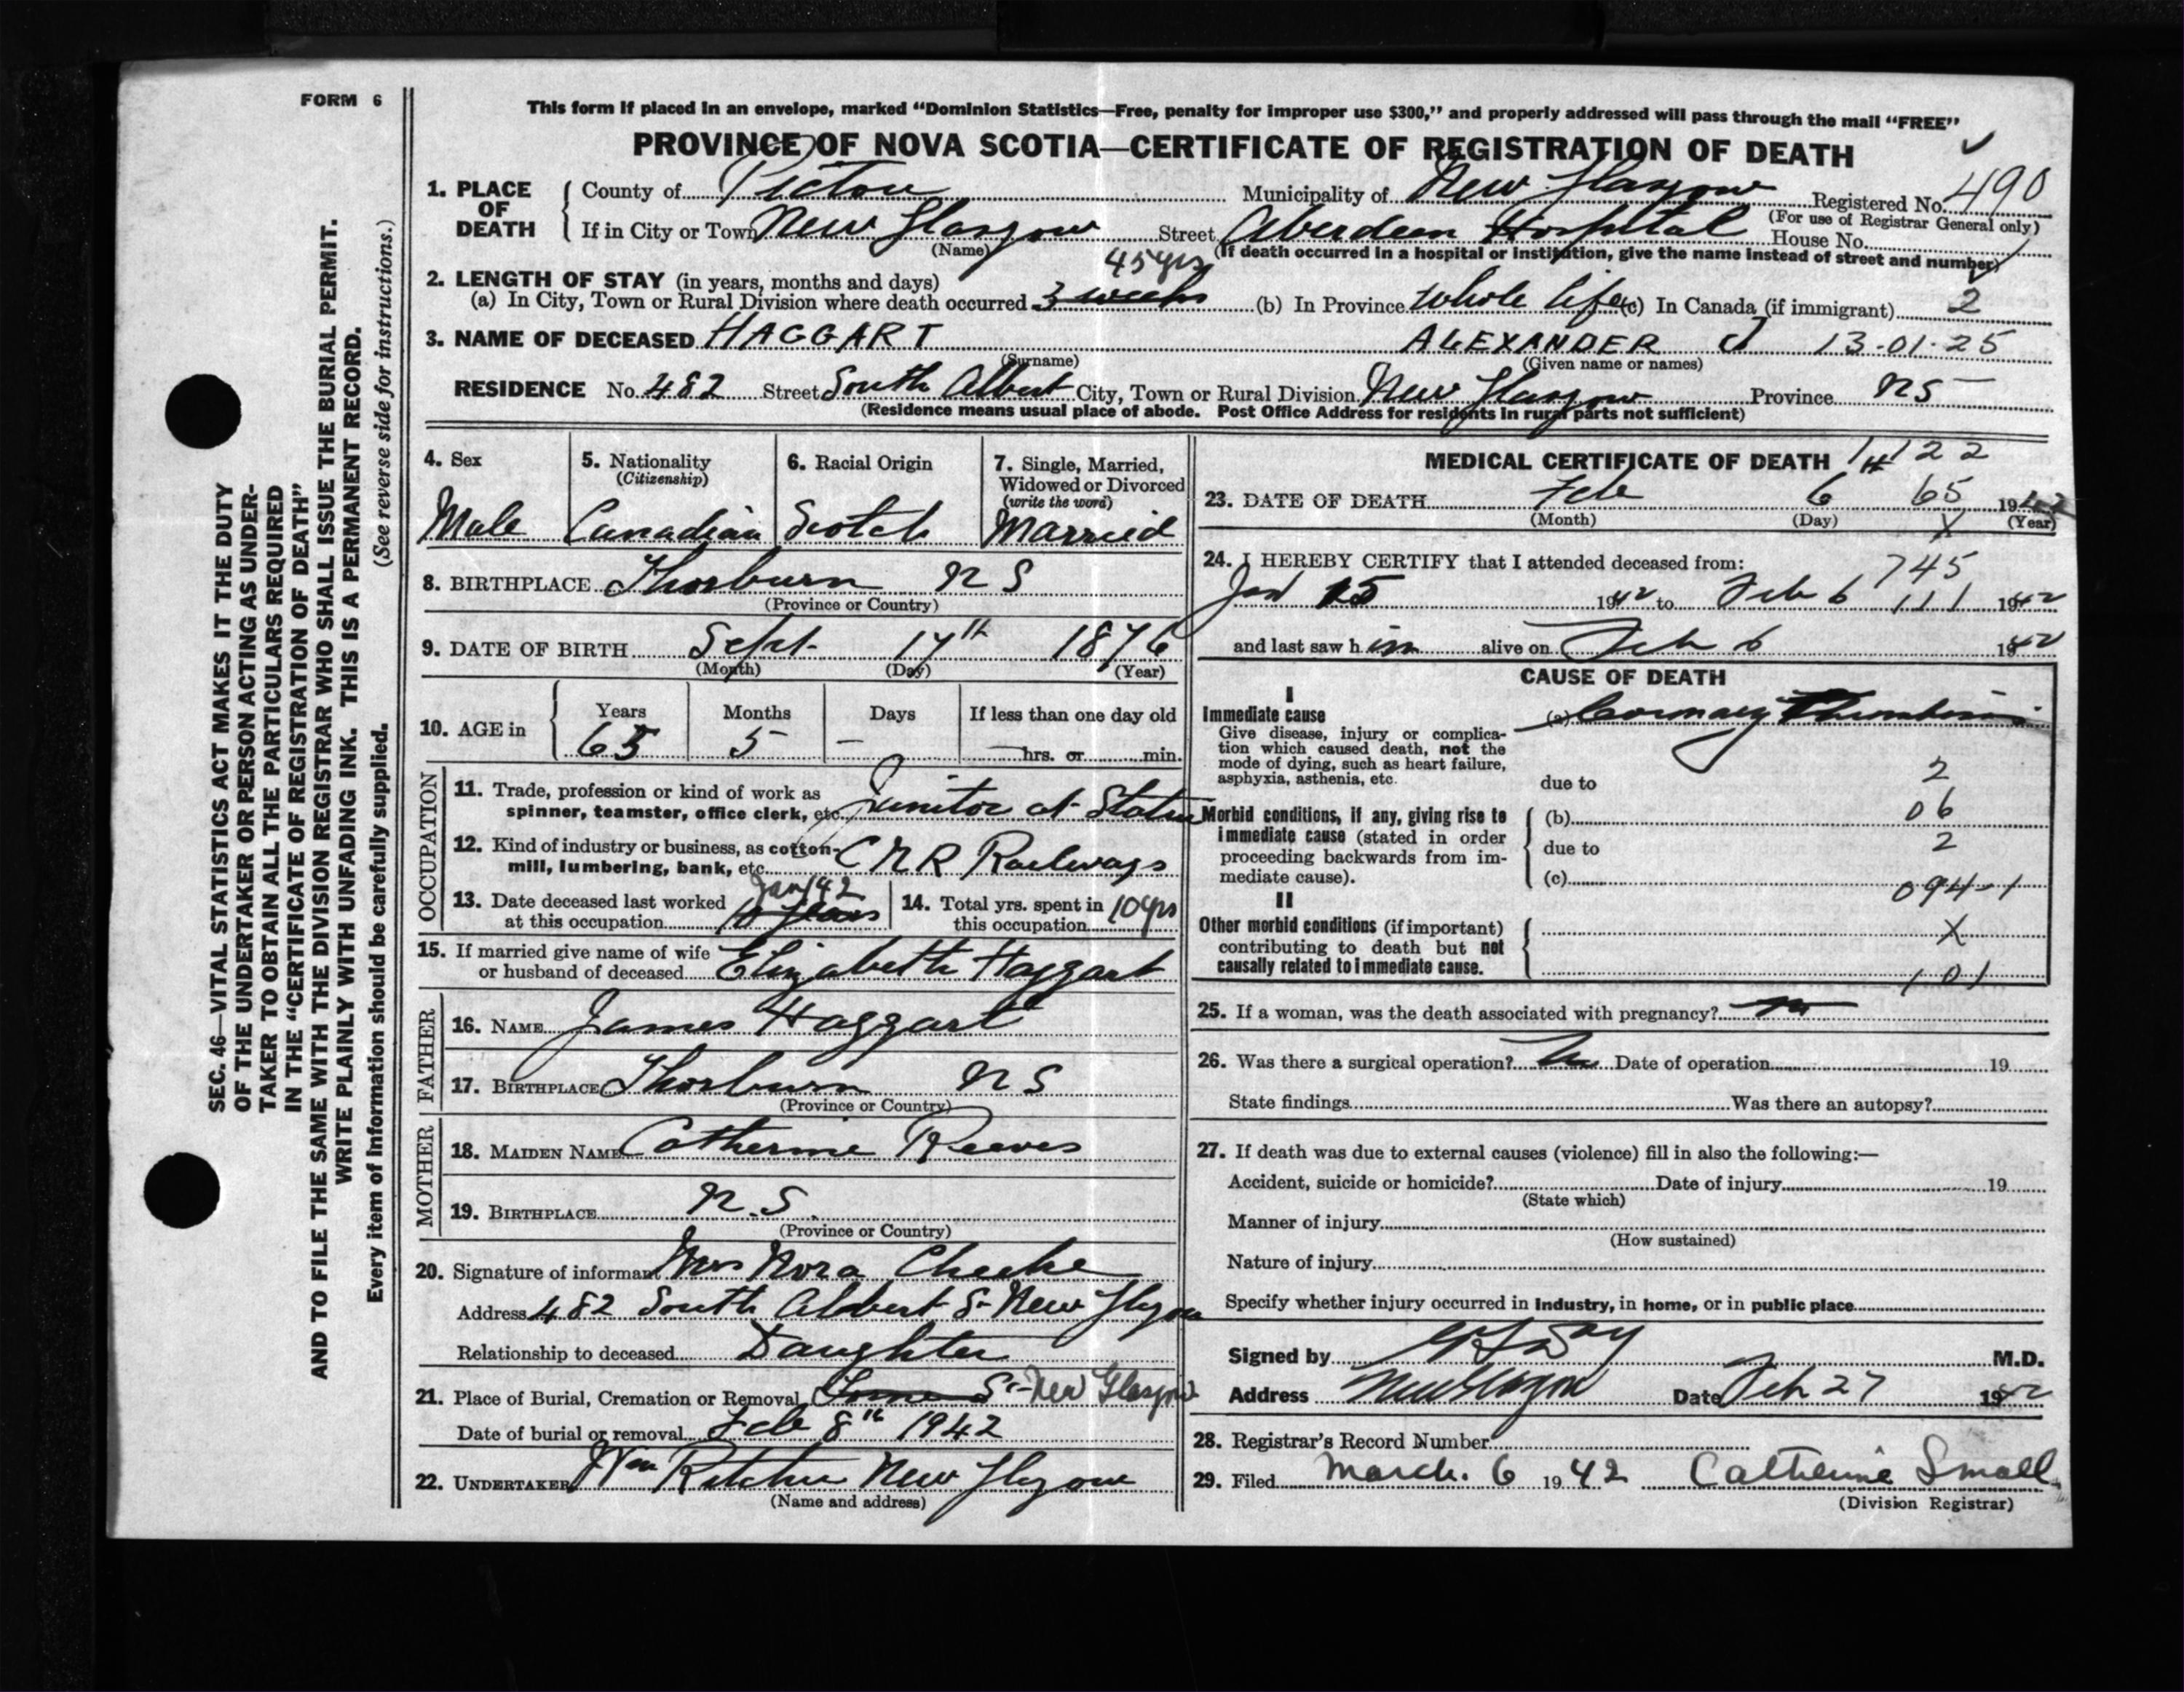 FORM 6
This form if placed in an envelope, marked “Dominion Statistics—Free, penalty for improper use $300,” and properly addressed will pass through the mail “FREE”
PROVINCE OF NOVA SCOTIA—CERTIFICATE OF REGISTRATION OF DEATH
1. PLACE OF DEATH County of Pictou Municipality of New Glasgow Registered No. 490
(For use of Registrar General only)
If in City or Town New Glasgow Street Aberdeen Hospital House No.
(Name) (If death occurred in a hospital or institution, give the name instead of street and number)
2. LENGTH OF STAY (in years, months and days) 45 yrs
(a) In City, Town or Rural Division where death occurred 3 weeks (b) In Province Whole life (c) In Canada (if immigrant) 2
3. NAME OF DECEASED HAGGART ALEXANDER J 13-01-25
(Surname) (Given name or names)
RESIDENCE No. 482 Street South Albert City, Town or Rural Division New Glasgow Province NS
(Residence means usual place of abode. Post Office Address for residents in rural parts not sufficient)
4. Sex 5. Nationality (Citizenship) 6. Racial Origin 7. Single, Married, Widowed or Divorced (write the word)
Male Canadian Scotch Married
8. BIRTHPLACE Thorburn NS
(Province or Country)
9. DATE OF BIRTH Sept. 17th 1876
(Month) (Day) (Year)
10. AGE in Years Months Days If less than one day old
65 5 — hrs. or min.
OCCUPATION
11. Trade, profession or kind of work as
spinner, teamster, office clerk, etc. Junitor at Station
12. Kind of industry or business, as cotton-
mill, lumbering, bank, etc. CNR Railways
13. Date deceased last worked Jan/42
at this occupation 10 years
14. Total yrs. spent in
this occupation 10 yrs
15. If married give name of wife
or husband of deceased Elizabeth Haggart
FATHER
16. NAME James Haggart
17. BIRTHPLACE Thorburn NS
(Province or Country)
MOTHER
18. MAIDEN NAME Catherine Reeves
19. BIRTHPLACE N.S.
(Province or Country)
20. Signature of informant Mrs Nora Cheeke
Address 482 South Albert St New Glasgow
Relationship to deceased Daughter
21. Place of Burial, Cremation or Removal St New Glasgow
Date of burial or removal Feb 8th 1942
22. UNDERTAKER Wm Ritchie New Glasgow
(Name and address)
MEDICAL CERTIFICATE OF DEATH 122
23. DATE OF DEATH Feb 6 65 1942
(Month) (Day) X (Year)
24. I HEREBY CERTIFY that I attended deceased from: 745
Jan 15 1942 to Feb 6 111 1942
and last saw him alive on Feb 6 1942
CAUSE OF DEATH
I
Immediate cause (a) Coronary Thrombosis
Give disease, injury or complica-
tion which caused death, not the
mode of dying, such as heart failure,
asphyxia, asthenia, etc.
due to 2
Morbid conditions, if any, giving rise to
immediate cause (stated in order
proceeding backwards from im-
mediate cause).
(b) 06
due to 2
(c) 094-1
II
Other morbid conditions (if important)
contributing to death but not
causally related to immediate cause.
X
101
25. If a woman, was the death associated with pregnancy? no
26. Was there a surgical operation? No Date of operation 19
State findings Was there an autopsy?
27. If death was due to external causes (violence) fill in also the following:—
Accident, suicide or homicide? Date of injury 19
(State which)
Manner of injury
(How sustained)
Nature of injury
Specify whether injury occurred in industry, in home, or in public place
Signed by M.D.
Address New Glasgow Date Feb 27 1942
28. Registrar's Record Number
29. Filed March. 6 1942 Catherine Small
(Division Registrar)
SEC. 46—VITAL STATISTICS ACT MAKES IT THE DUTY
OF THE UNDERTAKER OR PERSON ACTING AS UNDER-
TAKER TO OBTAIN ALL THE PARTICULARS REQUIRED
IN THE “CERTIFICATE OF REGISTRATION OF DEATH”
AND TO FILE THE SAME WITH THE DIVISION REGISTRAR WHO SHALL ISSUE THE BURIAL PERMIT.
WRITE PLAINLY WITH UNFADING INK. THIS IS A PERMANENT RECORD.
Every item of information should be carefully supplied. (See reverse side for instructions.)